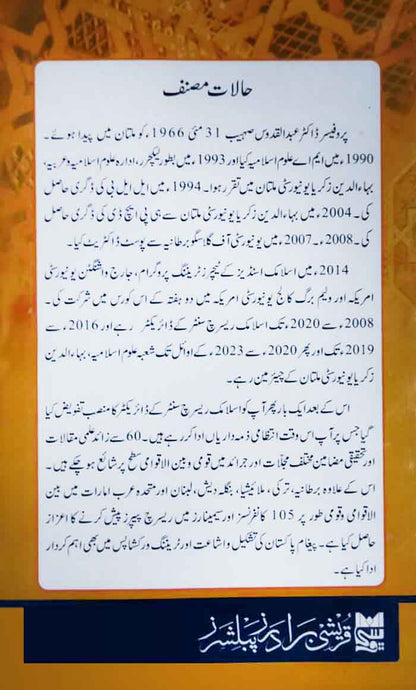 حالات مصنف
پروفیسر ڈاکٹر عبدالقدوس صہیب 31 مئی 1966ء کو ملتان میں پیدا ہوئے۔
1990ء میں ایم اے علوم اسلامیہ کیا اور 1993ء میں بطور لیکچرر، ادارہ علوم اسلامیہ و عربیہ،
بہاءالدین زکریا یونیورسٹی ملتان میں تقرر ہوا۔ 1994ء میں ایل ایل بی کی ڈگری حاصل
کی۔ 2004ء میں بہاءالدین زکریا یونیورسٹی ملتان سے ہی پی ایچ ڈی کی ڈگری حاصل
کی۔ 2008ء۔ 2007ء میں یونیورسٹی آف گلاسگو برطانیہ سے پوسٹ ڈاکٹریٹ کیا۔
2014ء میں اسلامک اسٹڈیز کے ٹیچرز ٹریننگ پروگرام، جارج واشنگٹن یونیورسٹی
امریکہ اور ولیم برگ کالج یونیورسٹی امریکہ میں دو ہفتہ کے اس کورس میں شرکت کی۔
2008ء سے 2020ء تک اسلامک ریسرچ سنٹر کے ڈائریکٹر رہے اور 2016ء سے
2019ء تک اور پھر 2020ء سے 2023ء کے اوائل تک شعبہ علوم اسلامیہ، بہاءالدین
زکریا یونیورسٹی ملتان کے چیئرمین رہے۔
اس کے بعد ایک بار پھر آپ کو اسلامک ریسرچ سنٹر کے ڈائریکٹر کا منصب تفویض کیا
گیا جس پر آپ اس وقت انتظامی ذمہ داریاں ادا کر رہے ہیں۔ 60 سے زائد علمی مقالات
اور تحقیقی مضامین مختلف مجلّات اور جرائد میں قومی و بین الاقوامی سطح پر شائع ہو چکے ہیں۔
اس کے علاوہ برطانیہ، ترکی، ملائیشیا، بنگلہ دیش، لبنان اور متحدہ عرب امارات میں بین
الاقوامی و قومی طور پر 105 کانفرنسز اور سیمینارز میں ریسرچ پیپرز پیش کرنے کا اعزاز
حاصل کیا ہے۔ پیغام پاکستان کی تشکیل و اشاعت اور ٹریننگ ورکشاپس میں بھی اہم کردار
ادا کیا ہے۔
قریشی برادرز پبلشرز